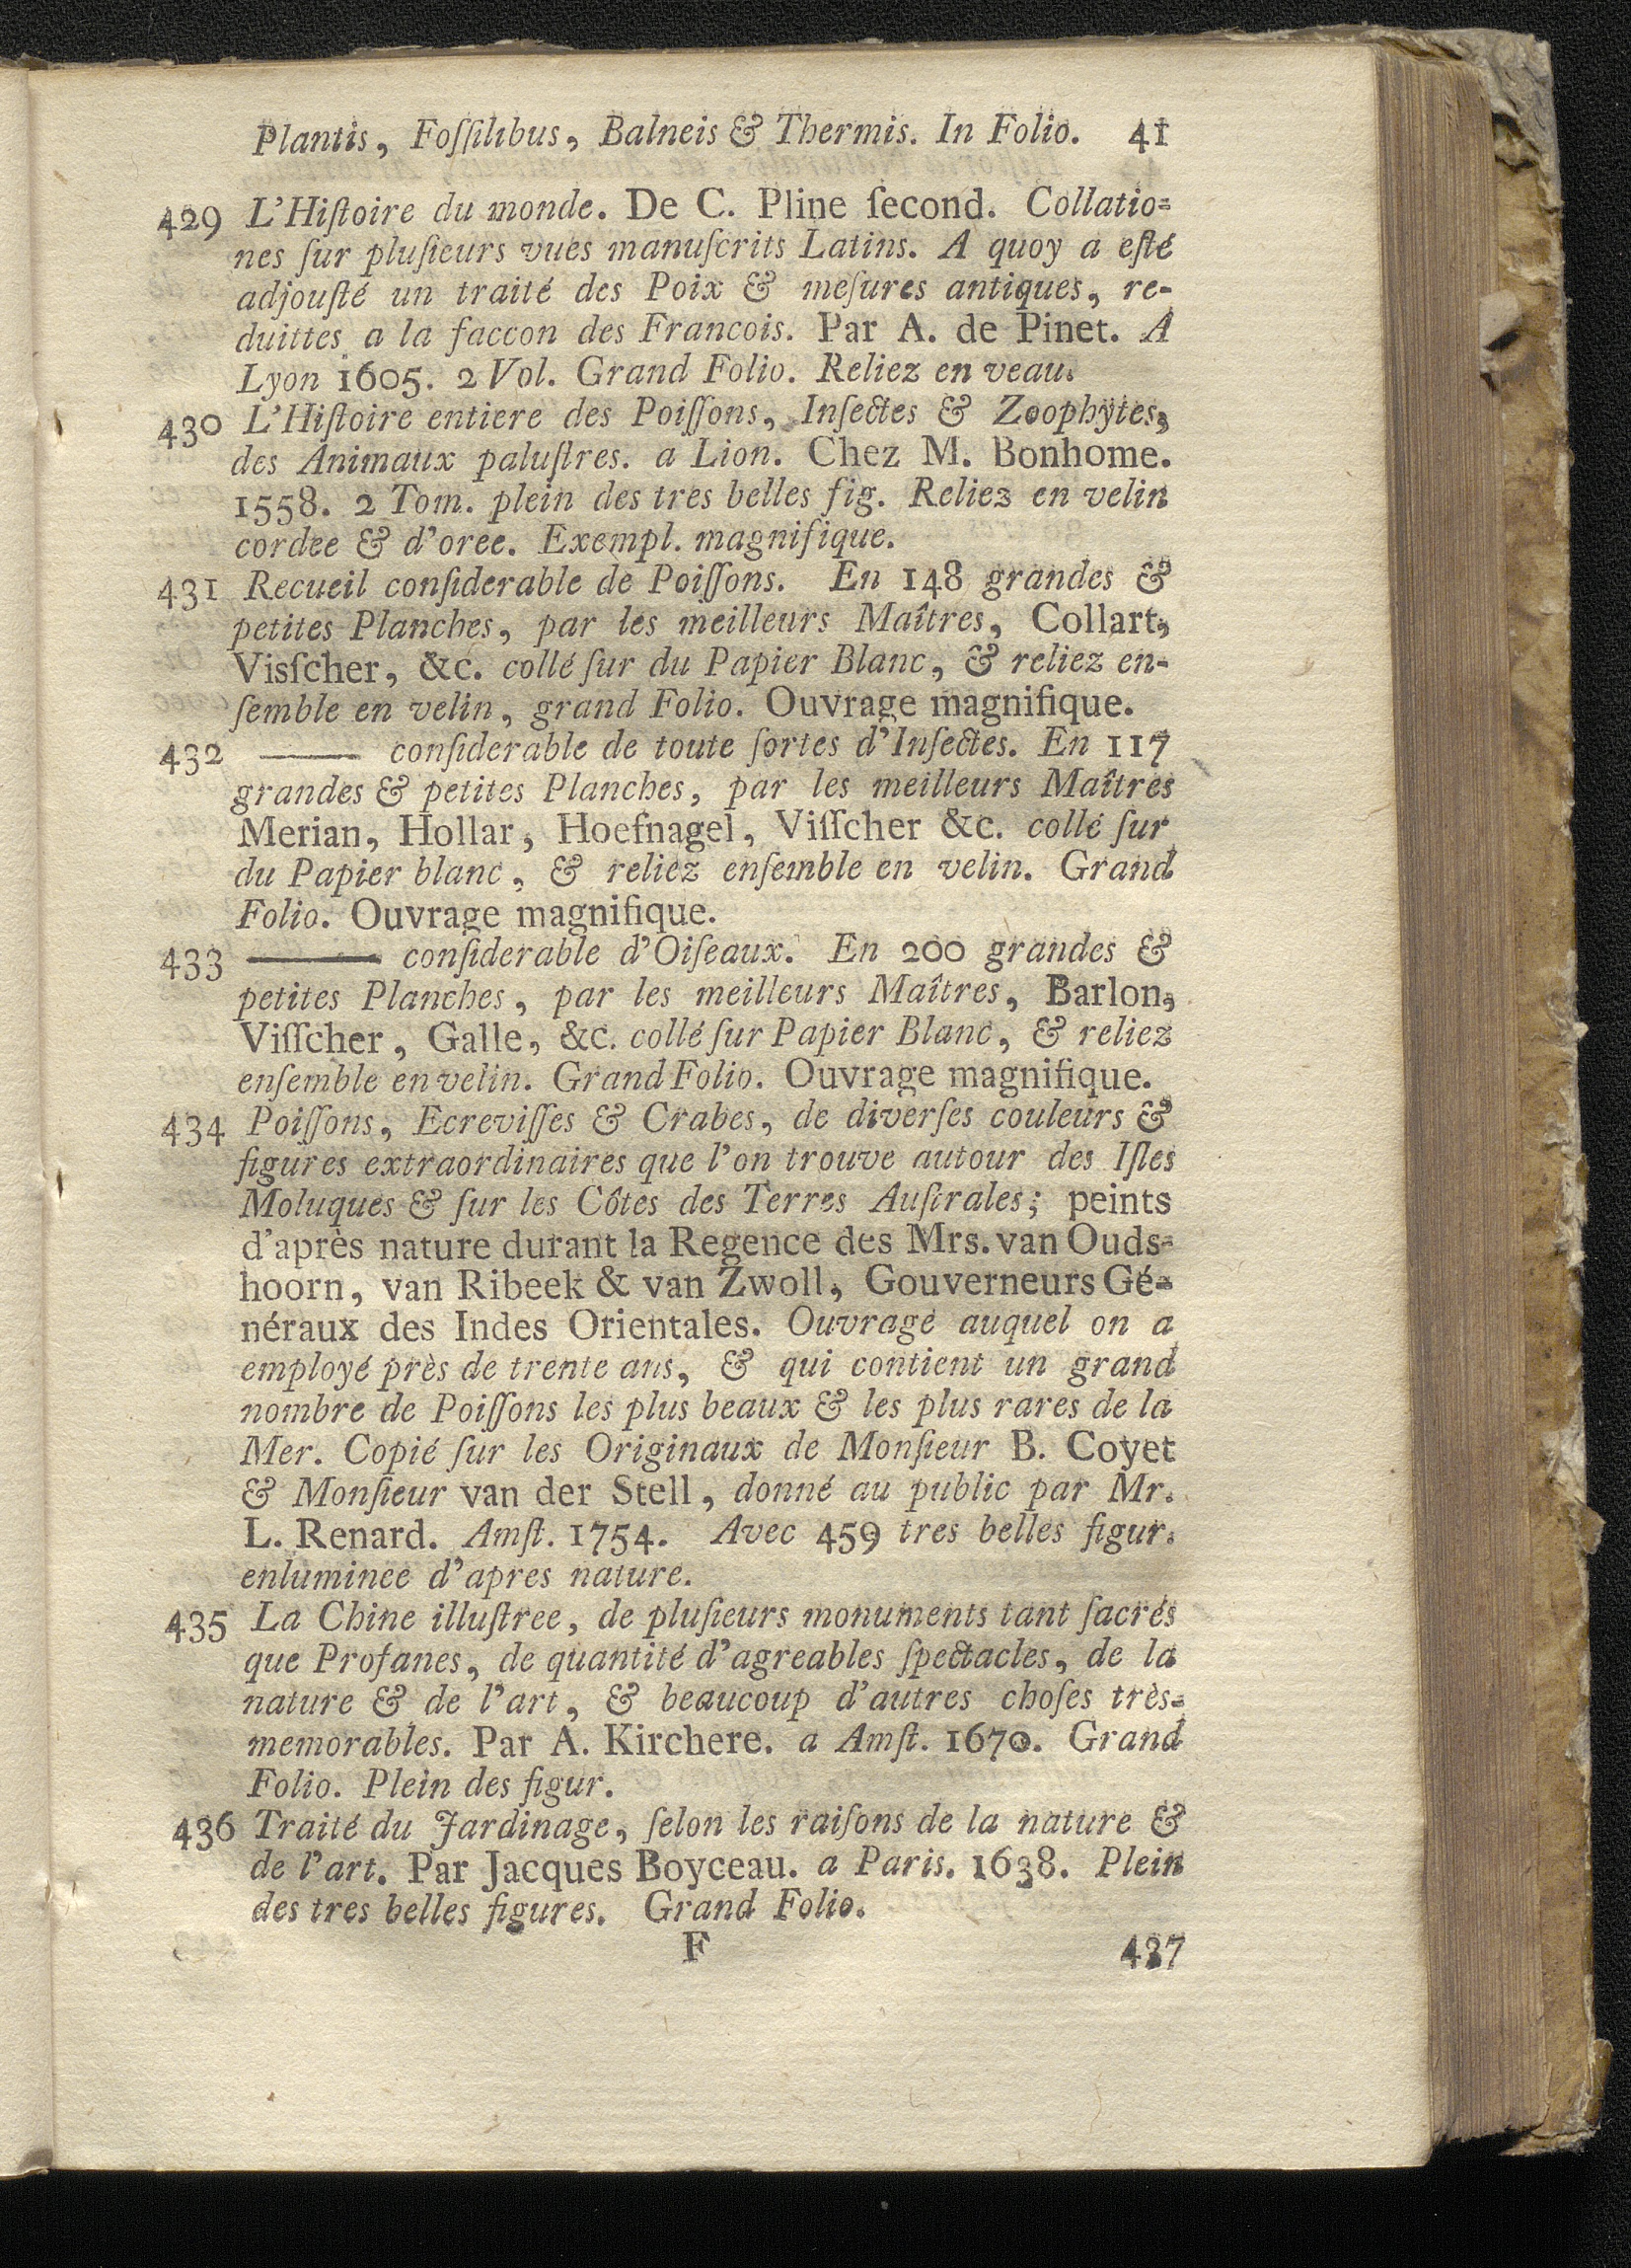 Plantis, Foſſilibus, Balneis & Thermis. In Folio. 41
429 L'Hiſtoire du monde. De C. Pline ſecond. Collatio-
nes ſur pluſieurs vues manuſcrits Latins. A quoy a eſté
adjouſté un traité des Poix & meſures antiques, re-
duittes a la faccon des Francois. Par A. de Pinet. A
Lyon 1605. 2 Vol. Grand Folio. Reliez en veau.
430 L'Hiſtoire entiere des Poiſſons, Inſectes & Zoophÿtes,
des Animaux paluſtres. a Lion. Chez M. Bonhome.
1558. 2 Tom. plein des tres belles fig. Reliez en velin
cordee & d'oree. Exempl. magnifique.
431 Recueil conſiderable de Poiſſons. En 148 grandes &
petites Planches, par les meilleurs Maîtres, Collart,
Visſcher, &c. collé ſur du Papier Blanc, & reliez en-
ſemble en velin, grand Folio. Ouvrage magnifique.
432 ——— conſiderable de toute ſortes d'Inſectes. En 117
grandes & petites Planches, par les meilleurs Maîtres
Merian, Hollar, Hoefnagel, Viſſcher &c. collé ſur
du Papier blanc, & reliez enſemble en velin. Grand
Folio. Ouvrage magnifique.
433 ——— conſiderable d'Oiſeaux. En 200 grandes &
petites Planches, par les meilleurs Maîtres, Barlon,
Viſſcher, Galle, &c. collé ſur Papier Blanc, & reliez
enſemble en velin. Grand Folio. Ouvrage magnifique.
434 Poiſſons, Ecreviſſes & Crabes, de diverſes couleurs &
figures extraordinaires que l'on trouve autour des Iſles
Moluques & ſur les Côtes des Terres Auſtrales; peints
d'après nature durant la Regence des Mrs. van Ouds-
hoorn, van Ribeek & van Zwoll, Gouverneurs Gé-
néraux des Indes Orientales. Ouvrage auquel on a
employé près de trente ans, & qui contient un grand
nombre de Poiſſons les plus beaux & les plus rares de la
Mer. Copié ſur les Originaux de Monſieur B. Coyet
& Monſieur van der Stell, donné au public par Mr.
L. Renard. Amſt. 1754. Avec 459 tres belles figur.
enluminee d'apres nature.
435 La Chine illuſtree, de pluſieurs monuments tant ſacrés
que Profanes, de quantité d'agreables ſpectacles, de la
nature & de l'art, & beaucoup d'autres choſes très-
memorables. Par A. Kirchere. a Amſt. 1670. Grand
Folio. Plein des figur.
436 Traité du Jardinage, ſelon les raiſons de la nature &
de l'art. Par Jacques Boyceau. a Paris. 1638. Plein
des tres belles figures. Grand Folio.
F 437